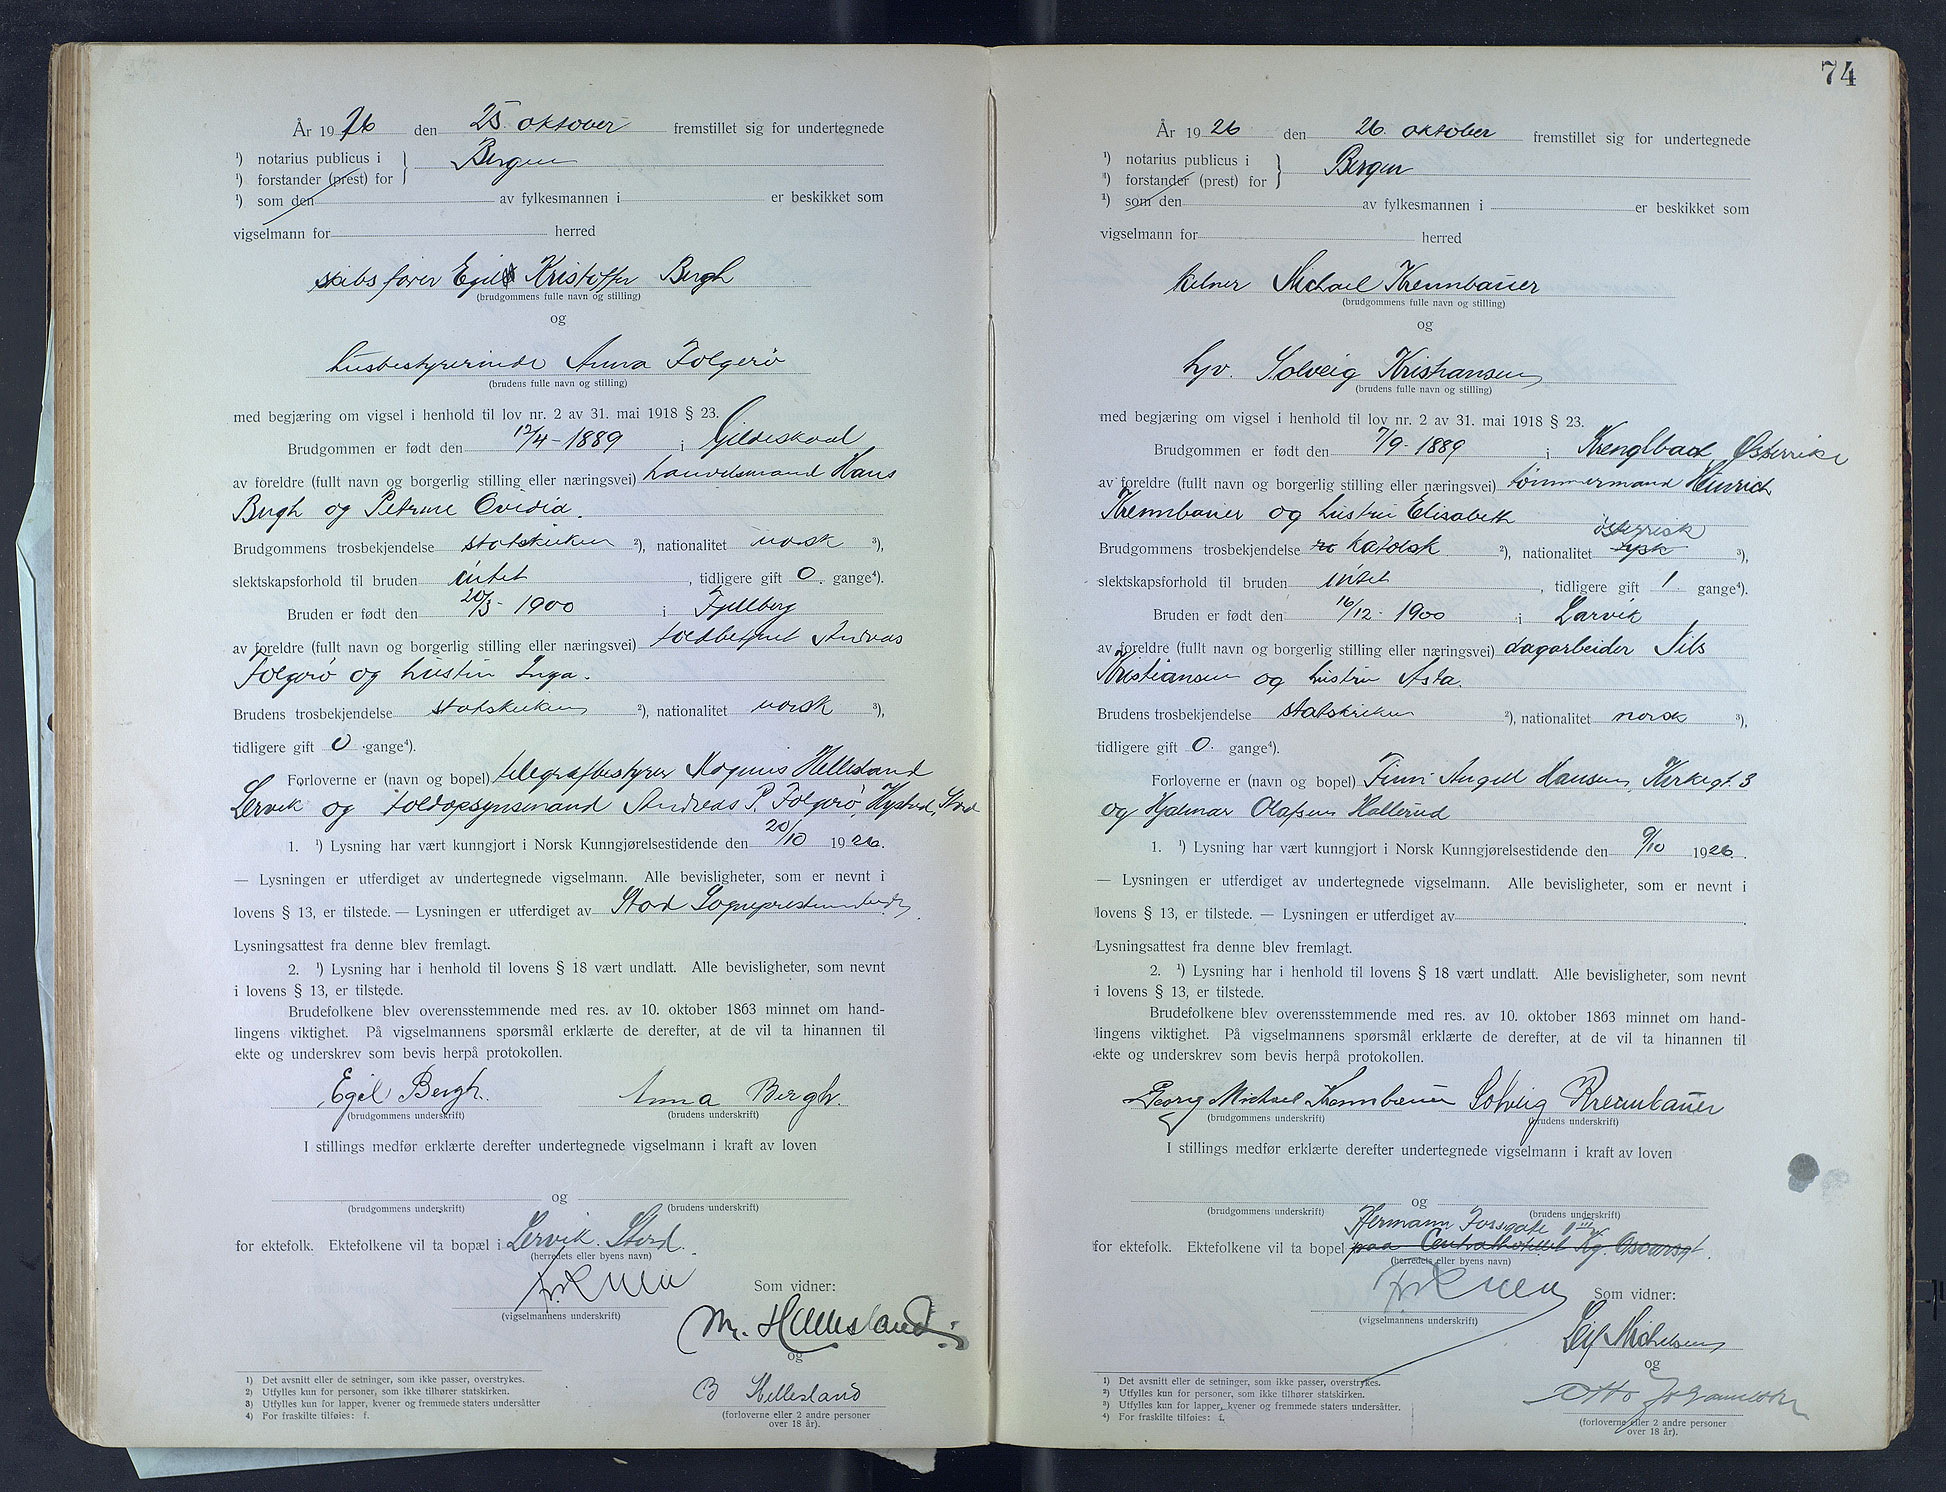 År 1926 den 25. oktober fremstillet sig for undertegnede
¹) notarius publicus i } Bergen
¹) forstander (prest) for
¹) som den av fylkesmannen i er beskikket som
vigselmann for herred
skibsfører Egil Kristoffer Bergh
(brudgommens fulle navn og stilling)
og
husbestyrerinde Anna Folgerø
(brudens fulle navn og stilling)
med begjæring om vigsel i henhold til lov nr. 2 av 31. mai 1918 § 23.
Brudgommen er født den 12/4-1889 i Gildeskaal
av foreldre (fullt navn og borgerlig stilling eller næringsvei) handelsmand Hans
Bergh og Petrine Ovidia.
Brudgommens trosbekjendelse statskirken ²), nationalitet norsk ³),
slektskapsforhold til bruden intet, tidligere gift 0. gange⁴).
Bruden er født den 20/3-1900 i Fjellberg
av foreldre (fullt navn og borgerlig stilling eller næringsvei) toldbetjent Andreas
Folgerø og hustru Inga.
Brudens trosbekjendelse statskirken ²), nationalitet norsk ³),
tidligere gift 0 gange⁴).
Forloverne er (navn og bopel) telegrafbestyrer Magnus Hellesland
Lervik og toldopsynsmand Andreas P. Folgerø, Hystad, Stord
1. ¹) Lysning har vært kunngjort i Norsk Kunngjørelsestidende den 20/10 1926.
— Lysningen er utferdiget av undertegnede vigselmann. Alle bevisligheter, som er nevnt i
lovens § 13, er tilstede. — Lysningen er utferdiget av Stord Sogneprestembede.
Lysningsattest fra denne blev fremlagt.
2. ¹) Lysning har i henhold til lovens § 18 vært undlatt. Alle bevisligheter, som nevnt
i lovens § 13, er tilstede.
Brudefolkene blev overensstemmende med res. av 10. oktober 1863 minnet om hand-
lingens viktighet. På vigselmannens spørsmål erklærte de derefter, at de vil ta hinannen til
ekte og underskrev som bevis herpå protokollen.
Egil Bergh. Anna Bergh.
(brudgommens underskrift) (brudens underskrift)
I stillings medfør erklærte derefter undertegnede vigselmann i kraft av loven
og
(brudgommens underskrift) (brudens underskrift)
for ektefolk. Ektefolkene vil ta bopæl i Lervik. Stord.
(herredets eller byens navn)
Som vidner:
(vigselmannens underskrift)
M. Hellesland
og
B Hellesland
(forloverne eller 2 andre personer
over 18 år).
1) Det avsnitt eller de setninger, som ikke passer, overstrykes.
2) Utfylles kun for personer, som ikke tilhører statskirken.
3) Utfylles kun for lapper, kvener og fremmede staters undersåtter
4) For fraskilte tilføies: f.
74
År 1926 den 26. oktober fremstillet sig for undertegnede
¹) notarius publicus i } Bergen
¹) forstander (prest) for
¹) som den av fylkesmannen i er beskikket som
vigselmann for herred
kelner Michael Krennbauer
(brudgommens fulle navn og stilling)
og
hjv. Solveig Kristiansen
(brudens fulle navn og stilling)
med begjæring om vigsel i henhold til lov nr. 2 av 31. mai 1918 § 23.
Brudgommen er født den 7/9-1889 i Krenglbach, Østerrike
av foreldre (fullt navn og borgerlig stilling eller næringsvei) tømmermand Heinrich
Krennbauer og hustru Elisabeth
østerrisk
Brudgommens trosbekjendelse ro katolsk ²), nationalitet tysk ³),
slektskapsforhold til bruden intet, tidligere gift 1 gange⁴).
Bruden er født den 16/12-1900 i Larvik
av foreldre (fullt navn og borgerlig stilling eller næringsvei) dagarbeider Nils
Kristiansen og hustru Asta.
Brudens trosbekjendelse statskirken ²), nationalitet norsk ³),
tidligere gift 0. gange⁴).
Forloverne er (navn og bopel) Finn Angell Hansen, Kirkegt. 3
og Hjalmar Olafsen Hallerud
1. ¹) Lysning har vært kunngjort i Norsk Kunngjørelsestidende den 9/10 1926.
— Lysningen er utferdiget av undertegnede vigselmann. Alle bevisligheter, som er nevnt i
lovens § 13, er tilstede. — Lysningen er utferdiget av
Lysningsattest fra denne blev fremlagt.
2. ¹) Lysning har i henhold til lovens § 18 vært undlatt. Alle bevisligheter, som nevnt
i lovens § 13, er tilstede.
Brudefolkene blev overensstemmende med res. av 10. oktober 1863 minnet om hand-
lingens viktighet. På vigselmannens spørsmål erklærte de derefter, at de vil ta hinannen til
ekte og underskrev som bevis herpå protokollen.
Georg Michael Krennbauer Solveig Krennbauer
(brudgommens underskrift) (brudens underskrift)
I stillings medfør erklærte derefter undertegnede vigselmann i kraft av loven
og
(brudgommens underskrift) (brudens underskrift)
Hermann Fossgate 8 III
for ektefolk. Ektefolkene vil ta bopel paa Centralhotellet Kg. Oscarsgt.
(herredets eller byens navn)
Som vidner:
(vigselmannens underskrift)
Leif Michelsen
og
Otto
(forloverne eller 2 andre personer
over 18 år).
¹) Det avsnitt eller de setninger, som ikke passer, overstrykes.
²) Utfylles kun for personer, som ikke tilhører statskirken.
³) Utfylles kun for lapper, kvener og fremmede staters undersåtter.
⁴) For fraskilte tilføies: f.